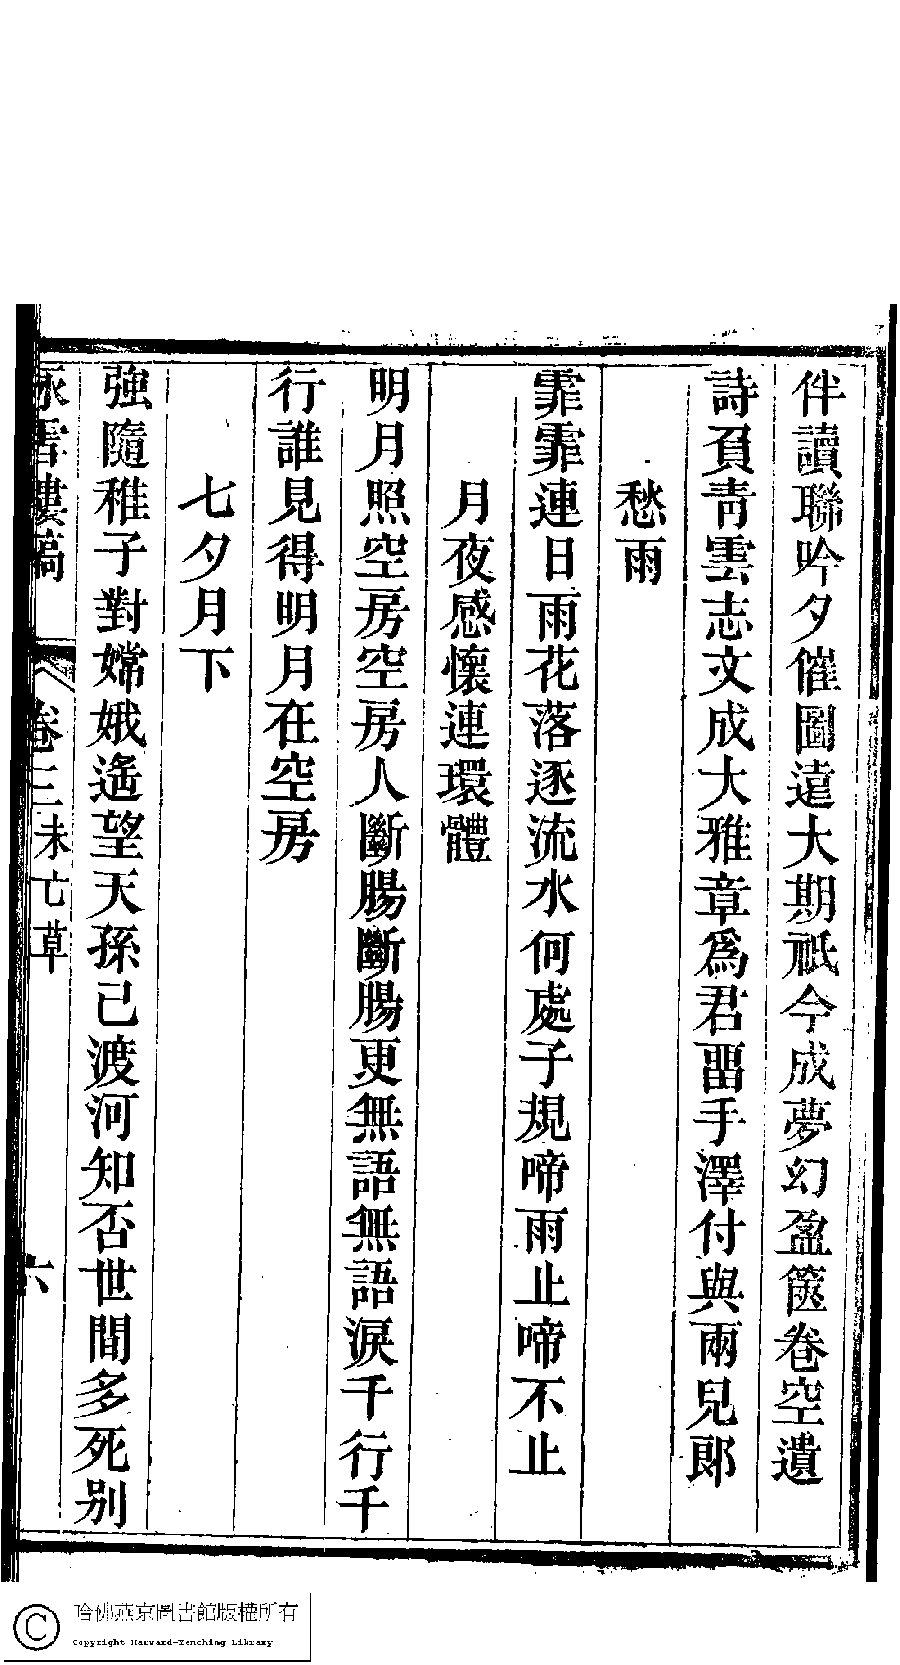 伴讀聯吟夕催圖遠大期祇今成夢幻盈篋卷空遺
詩負靑雲志文成大雅章爲君畱手澤付與兩兒郎
愁雨
霏霏連日雨花落逐流水何處子規啼雨止啼不止
月夜感懷連環體
明月照空房空房人斷腸斷腸更無語無語淚千行千
行誰見得明月在空房
七夕月下
強隨稚子對嫦娥遙望天孫已渡河知否世間多死別
樓稿 卷三未亡草 六
哈佛燕京圖書館版權所有
Copyright Harvard-Yenching Library